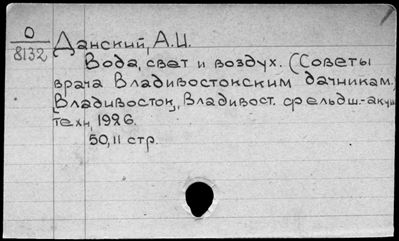 О
8132
Данский, А.И.
Вода, свет и воздух. (Советы
врача Владивостокским дачникам.)
[Владивосток], Владивост. фельдш.-акуш.
техн, 1926.
50, II стр.